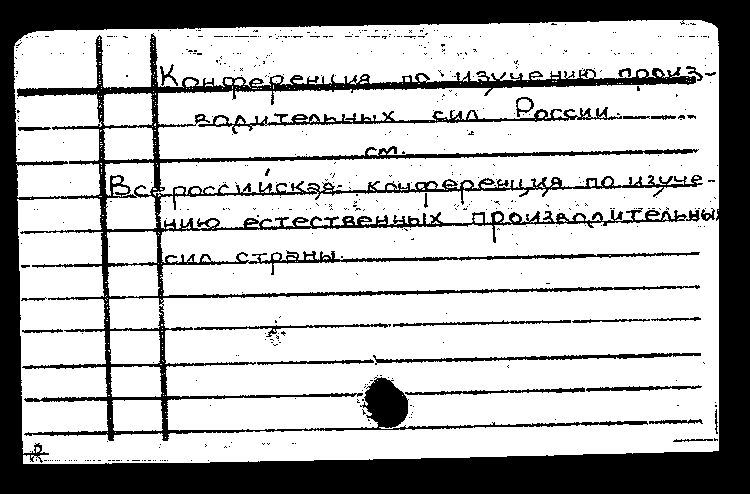 Конференция по изучению произ-
водительных сил России.
см.
Всероссийская конференция по изуче-
нию естественных производительны
сил страны.